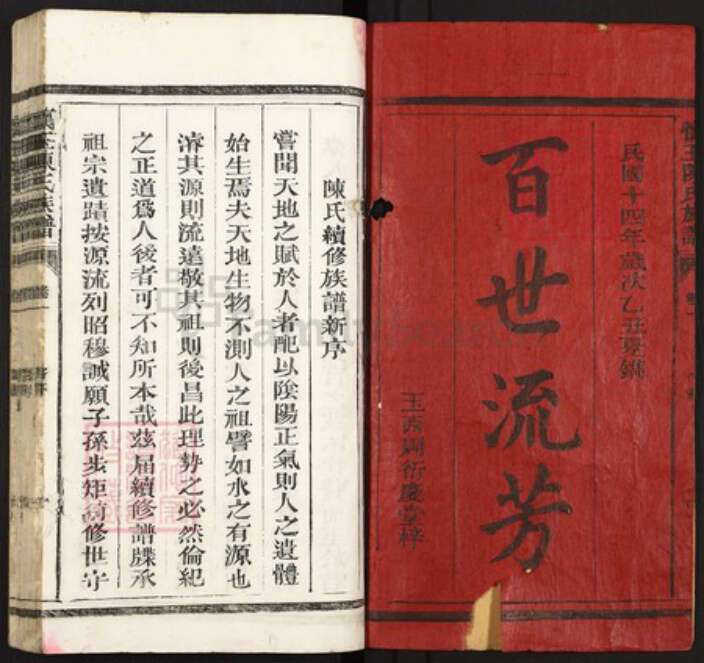 民國十四年歲次乙丑夏鐫
百世流芳
衍慶堂梓
陳氏續修族譜新序
嘗聞天地之賦於人者配以陰陽正氣則人之遺體
始生焉夫天地生物不測人之祖譬如水之有源也
濬其源則流遠敬其祖則後昌此理勢之必然倫紀
之正道爲人後者可不知所本哉茲届續修譜牒承
祖宗遺蹟按源流列昭穆誠願子孫步矩前修世守
陳氏族譜